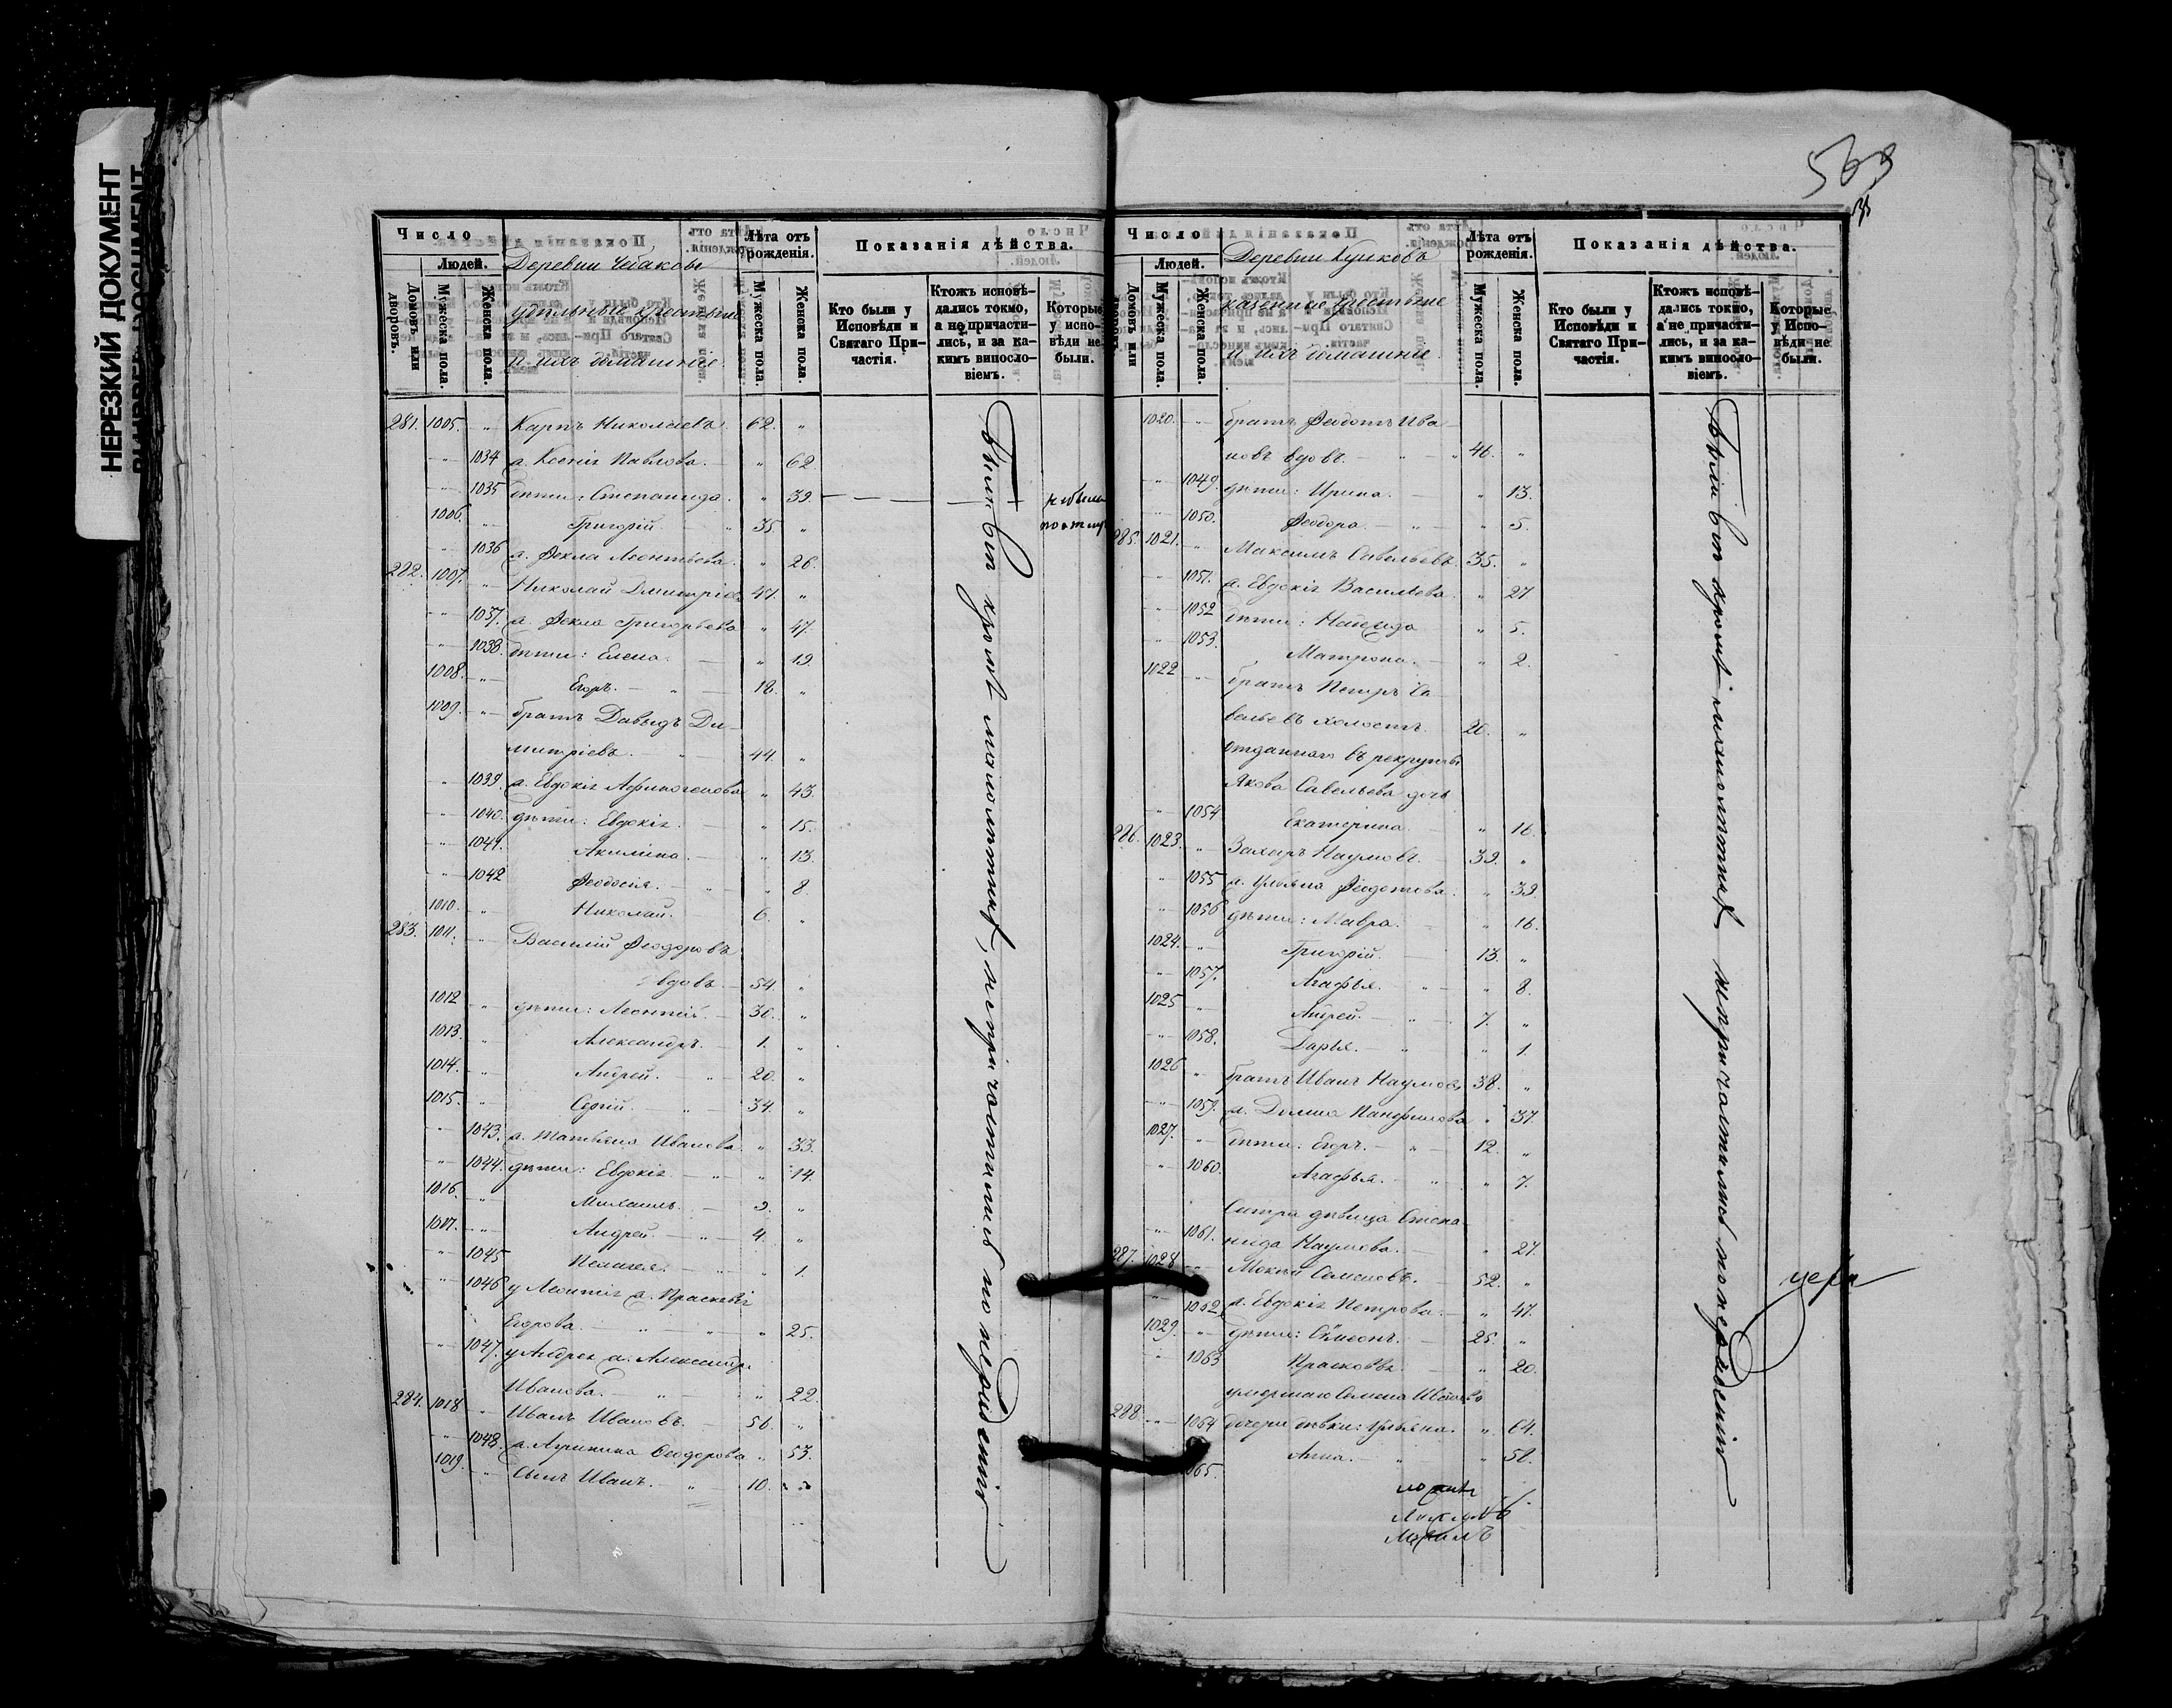 НЕРЕЗКИЙ ДОКУМЕНТ
Число
Людей.
Домовъ или дворовъ.
Мужеска пола.
Женска пола.
Деревни Чебаковы
удѣльные крестьяне
и ихъ домашніе.
Лѣта отъ рожденія.
Мужеска пола.
Женска пола.
Показанія дѣйства.
Кто были у Исповѣди и Святаго Причастія.
Ктожъ исповѣдались токмо, а не причастились, и за какимъ винословіемъ.
Которые у исповѣди не были.
281. 1005. " Карпъ Николаевъ 62. "
" 1034 ж. Ксенія Павлова. " 62
" 1035 дѣти: Степанида. " 39.
1006. " Григорій. 35. "
" 1036 ж. Фекла Леонтьева. " 26.
282. 1007. " Николай Димитріевъ 47. "
" 1037. ж. Фекла Григорьева " 47.
" 1038. дѣти: Елена. " 19.
1008. " Егоръ. 18. "
1009. " братъ Давыдъ Ди-
митріевъ. 44. "
" 1039. ж. Евдокія Афиногенова " 43.
" 1040. дѣти: Евдокія. " 15.
" 1041. Акилина. " 13.
" 1042 Феодосія. " 8.
1010. " Николай. 6. "
283. 1011. " Василій Феодоровъ
вдовъ. 54. "
1012 " дѣти: Леонтій. 30. "
1013. " Александръ. 1. "
1014. " Андрей. 20. "
1015. " Сергій. 34. "
" 1043. ж. Татьяна Иванова. " 33.
" 1044. дѣти: Евдокія " 14.
1016. " Михаилъ. 9. "
1017. " Андрей. 4. "
" 1045 Пелагея. " 1.
" 1046 у Леонтія ж. Прасковья
Егорова. " 25.
" 1047. у Андрея ж. Александра
Иванова. " 22.
284. 1018 " Иванъ Ивановъ. 56. "
" 1048. ж. Агрипина Феодорова " 53.
1019. " Сынъ Иванъ. 10. "
Были вси кромѣ малолѣтнихъ, непричастились по нерадѣнію
569
Число
Людей.
Домовъ или дворовъ.
Мужеска пола.
Женска пола.
Деревни Куликовъ
казенные крестьяне
и ихъ домашніе.
Лѣта отъ рожденія.
Мужеска пола.
Женска пола.
Показанія дѣйства.
Кто были у Исповѣди и Святаго Причастія.
Ктожъ исповѣдались токмо, а не причастились, и за какимъ винословіемъ.
Которые у Исповѣди не были.
1020. " братъ Феодотъ Ива
новъ вдовъ. 46. "
" 1049. дѣти: Ирина. " 13.
" 1050. Феодора. " 5.
285. 1021. " Максимъ Савельевъ. 35. "
" 1051. ж. Евдокія Васильева. " 27
" 1052 дѣти: " 5.
" 1053. Матрона. " 2.
1022 " братъ Петръ Са
вельевъ холостъ. 20. "
отданнаго въ рекруты
Якова Савельева дочь
" 1054 Екатерина. " 16.
286. 1023. " Захаръ Наумовъ. 39. "
" 1055 ж. Ульяна Феодотова. " 39.
" 1056 дѣти: Мавра. " 16.
1024. " Григорій. 13. "
" 1057. Агафья. " 8.
1025 " Андрей. 7. "
" 1058. Дарья. " 1.
1026 " братъ Иванъ Наумовъ 38. "
" 1059. ж. Домна Панфилова " 37.
1027. " дѣти: Егоръ. 12. "
" 1060. Агафья. " 7.
Сестра дѣвица Степа
" 1061. нида Наумова. " 27.
287. 1028 " Мокій Семеновъ. 52. "
" 1062 ж. Евдокія Петрова. " 47.
1029. " дѣти: Симеонъ. 25. "
" 1063 Прасковья. " 20.
умершаго Семена
288. " 1064 дочери дѣвки: Ульяна. " 64.
1065. Анна. " 50.
Были вси кромѣ малолѣтнихъ непричастились по нерадѣнію